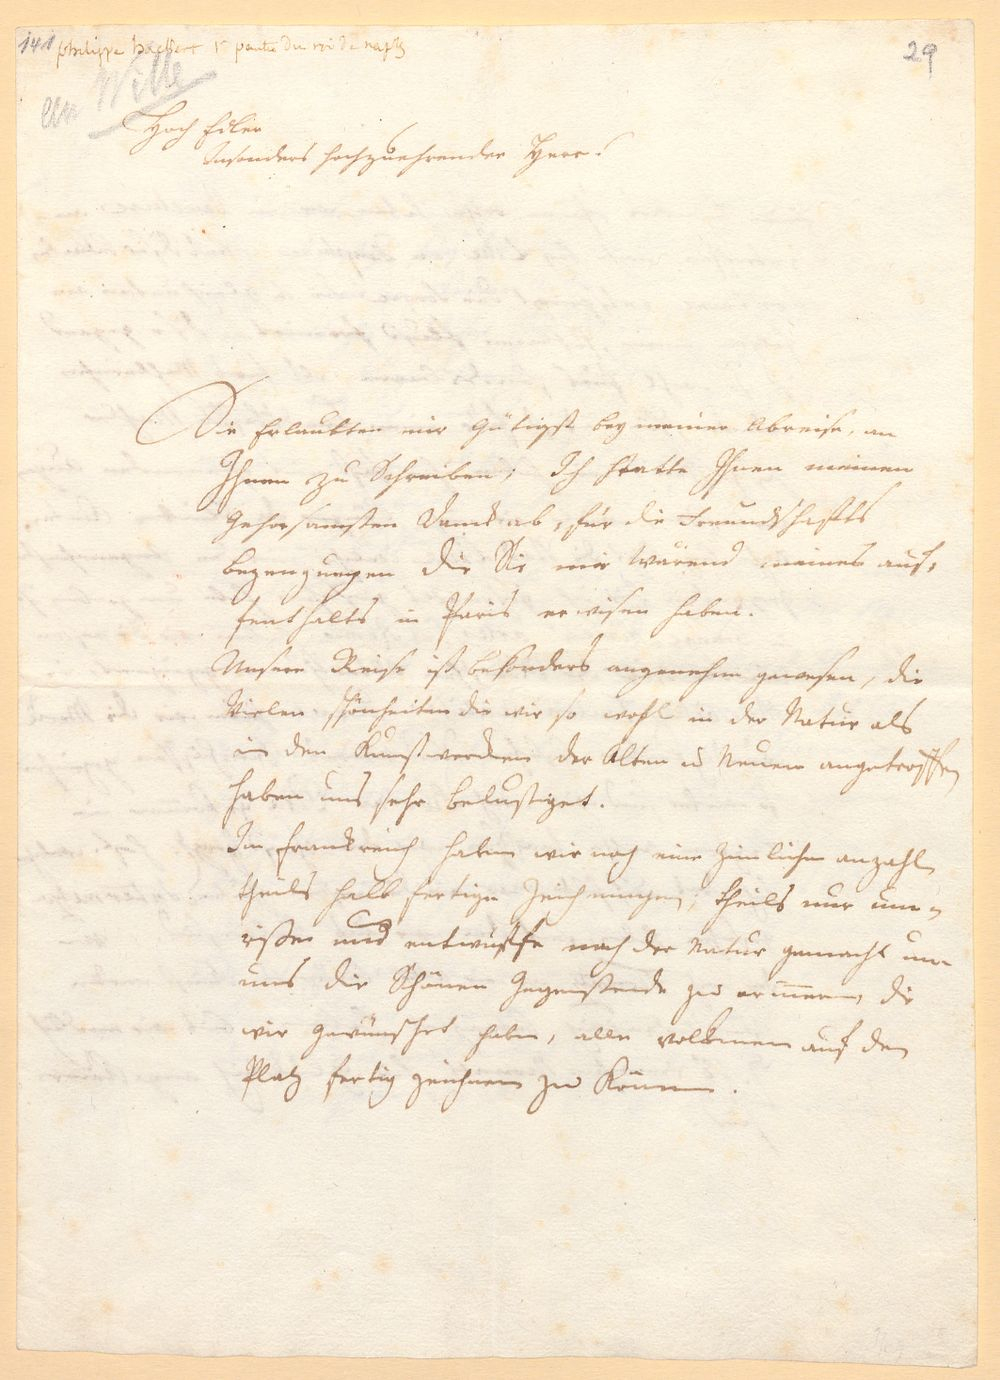 141 philippe hackert 1r peintre du roi de naples
29
an Wille
Hoch Edler
Insonders hochzuehrender Herr!
Sie Erlaubten mir Gütigst bey meiner Abreise, an
Ihnen zu Schreiben; Ich statte Ihnen meinen
Gehorsamsten Danck ab, für die Freundschaffts
bezeugungen die Sie mir wärend meines auf¬
fenthalts in Paris erwisen haben.
Unsere Reise ist besonders angenehm gewesen, die
Vielen schönheiten die wir so wohl in der Natur als
in den Kunstwercken der Alten u Neuern angetroffen
haben uns sehr belustiget.
In Franckreich haben wir noch eine Zimliche anzahl
theils halb fertige Zeichnungen, theils nur um¬
risse und entwürffe nach der Natur gemacht um
uns die Schönen Gegenstende zu erinnern, die
wir gewünschet haben, alle volkmen auf dem
Platz fertig zeichnen zu Können.